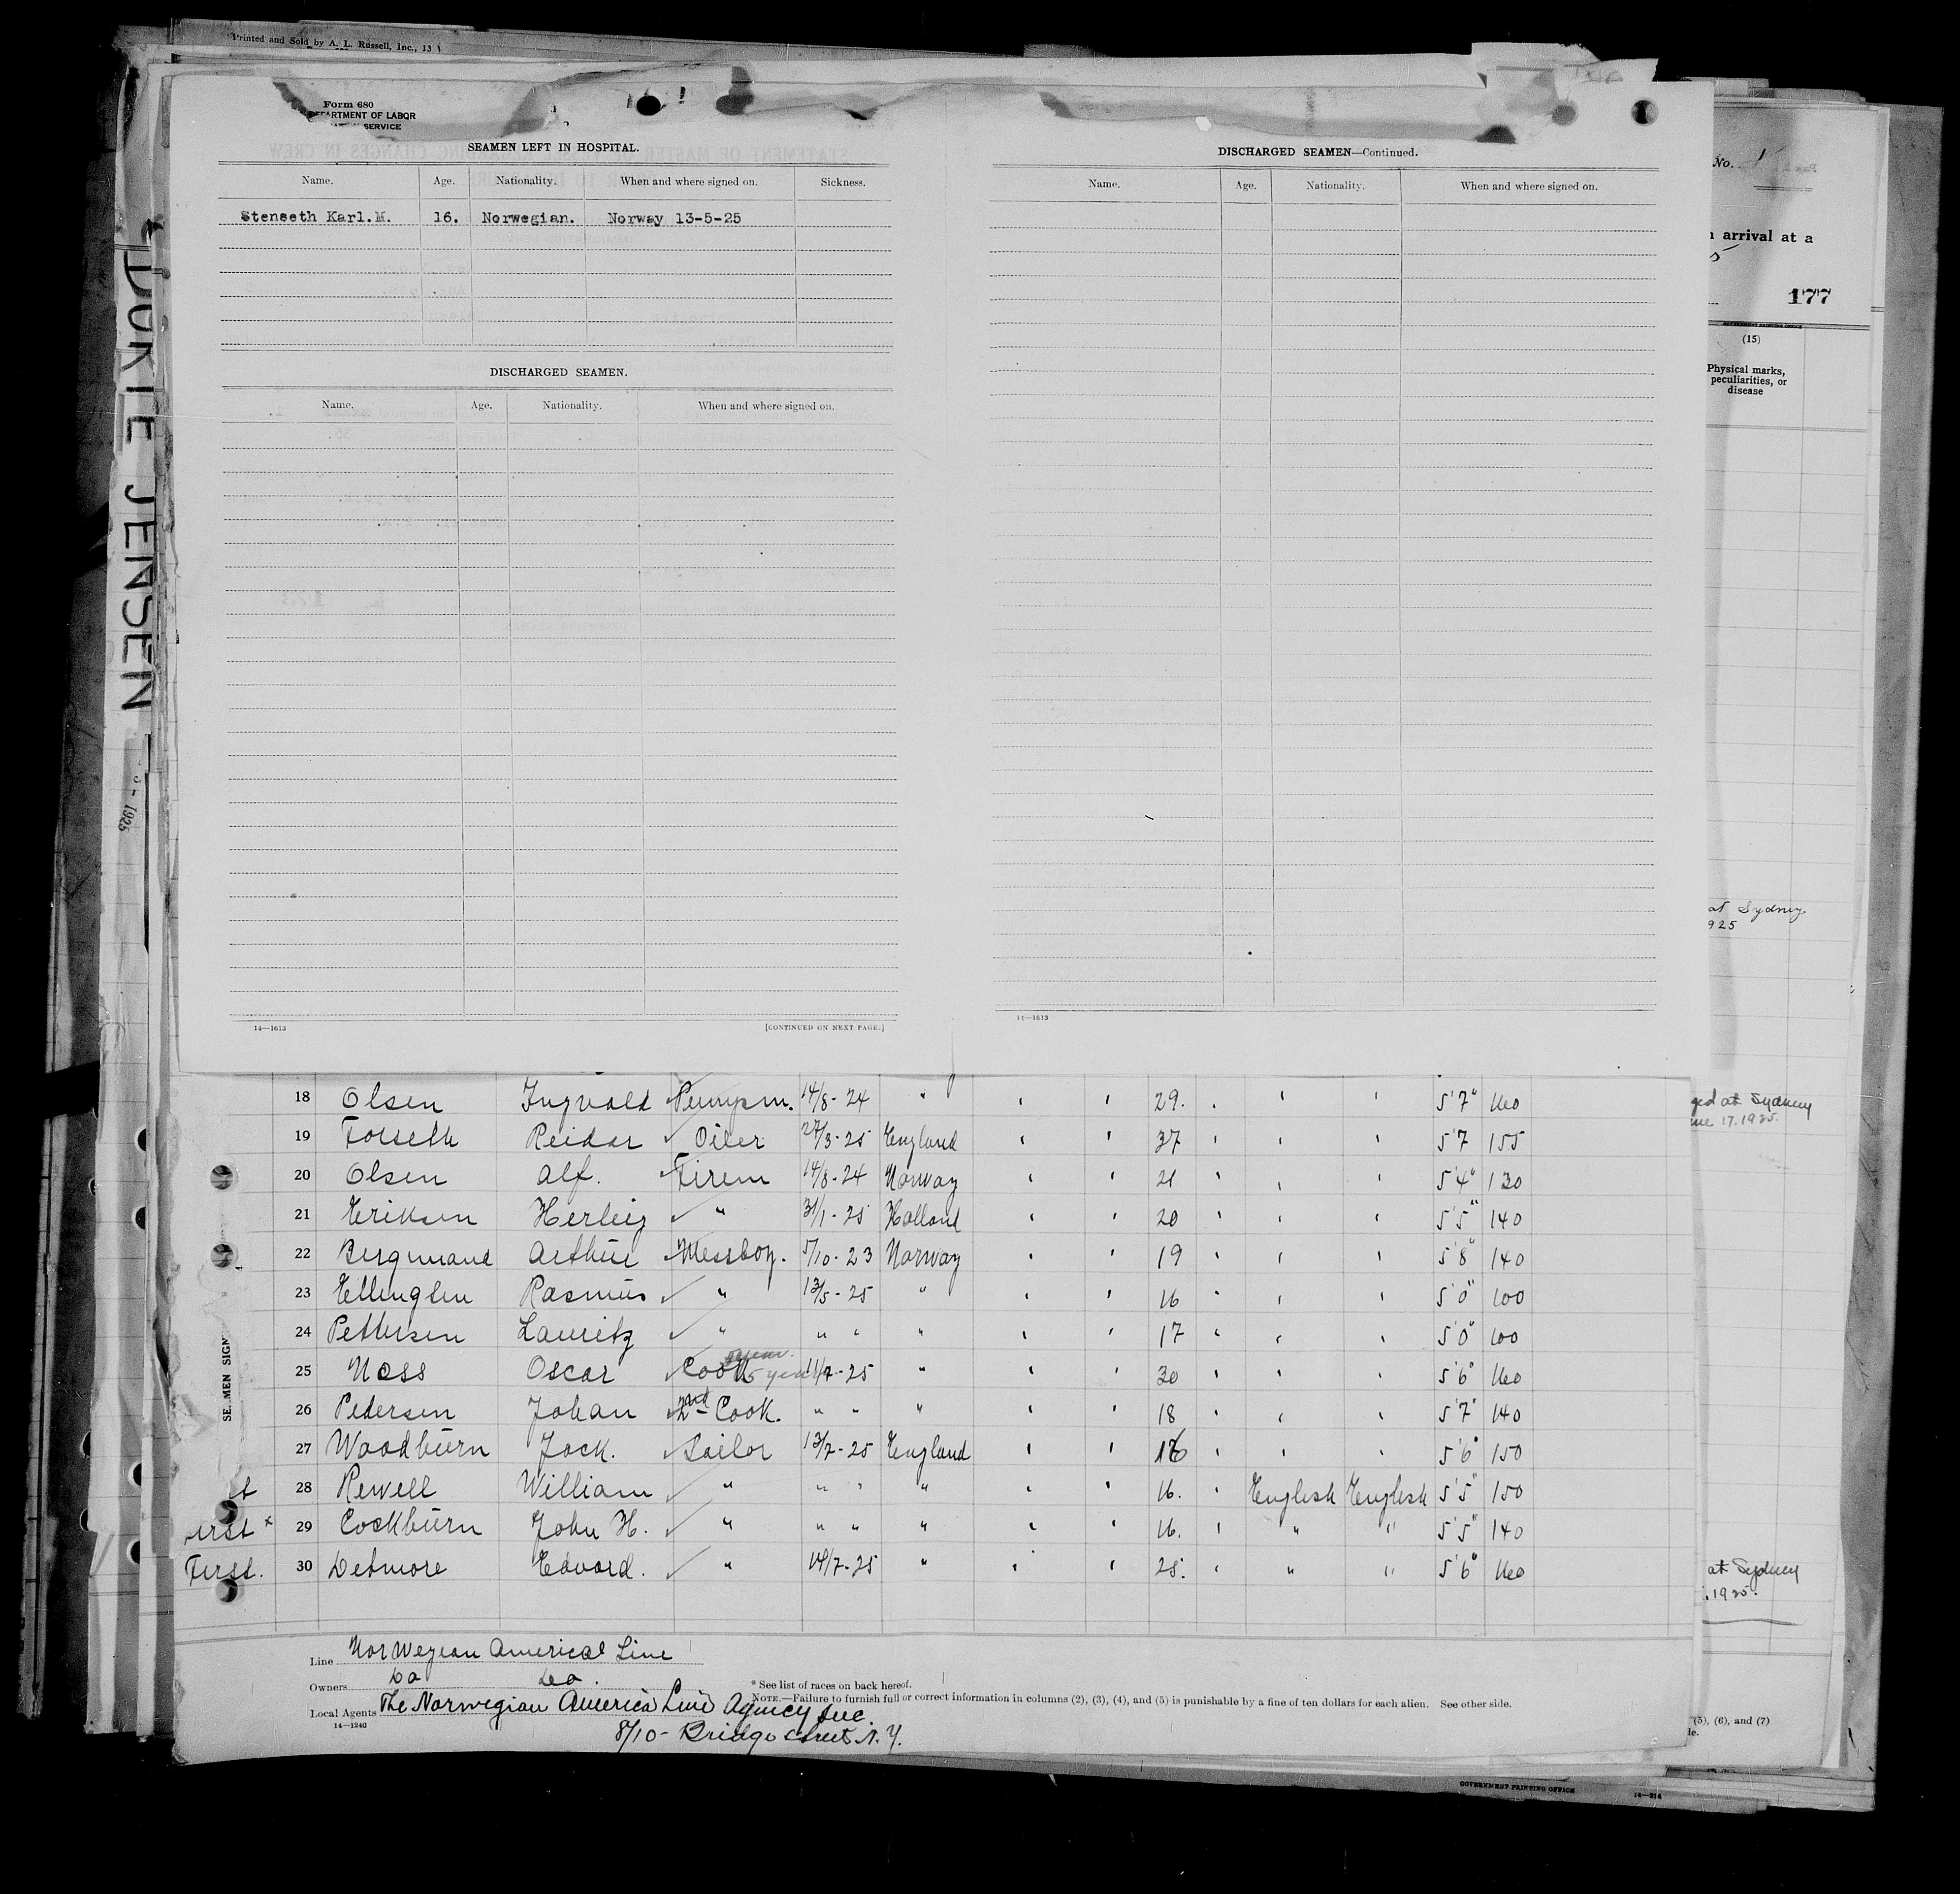 Printed and Sold by A. L. Russell, Inc., 13
Form 680
DEPARTMENT OF LABOR
SERVICE
SEAMEN LEFT IN HOSPITAL.
Name. Age. Nationality. When and where signed on. Sickness.
Stenseth Karl.M. 16. Norwegian. Norway 13-5-25
DISCHARGED SEAMEN.
Name. Age. Nationality. When and where signed on.
14—1613 [CONTINUED ON NEXT PAGE.]
DISCHARGED SEAMEN—Continued.
Name. Age. Nationality. When and where signed on.
14—1613
No. 1
arrival at a
177
GOVERNMENT PRINTING OFFICE
(15)
Physical marks,
peculiarities, or
disease
at Sydney
925
JENSEN
1925
18 Olsen Ingvald Pumpm. 14/8-24 " 29. 5'7" 160
19 Reidar Oiler 27/3-25 England 37 5'7 155
20 Olsen Alf. Firem 14/8-24 Norway 21 5'4" 130
21 Eriksen " 31/1-25 Holland 20 5'5" 140
22 Messboy. 5/10-23 Norway 19 5'8" 140
23 Rasmus " 13/5-25 " 16 5'0" 100
24 Pettersen Lauritz " " " " 17 5'0" 100
25 Ness Oscar Cook 5 year 11/7-25 " 30 5'6" 160
26 Pedersen Johan 2nd Cook. " " " 18 5'7" 140
27 Woodburn Jock. Sailor 13/7-25 England 16 5'6" 150
28 Rewell William " " " " 16. English English 5'5" 150
29 Cockburn John H. " " " " 16. " " 5'5" 140
First. 30 Detmore Edvard. " 14/7-25 " 25. " " 5'6" 160
at Sydney
17.1925.
at Sydney
.1925.
Line Norwegian America Line
Owners do do.
Local Agents The Norwegian America Line Agency Inc.
8/10- Bridge Street N.Y.
14—1240
* See list of races on back hereof.
NOTE.—Failure to furnish full or correct information in columns (2), (3), (4), and (5) is punishable by a fine of ten dollars for each alien. See other side.
(5), (6), and (7)
GOVERNMENT PRINTING OFFICE
14—214